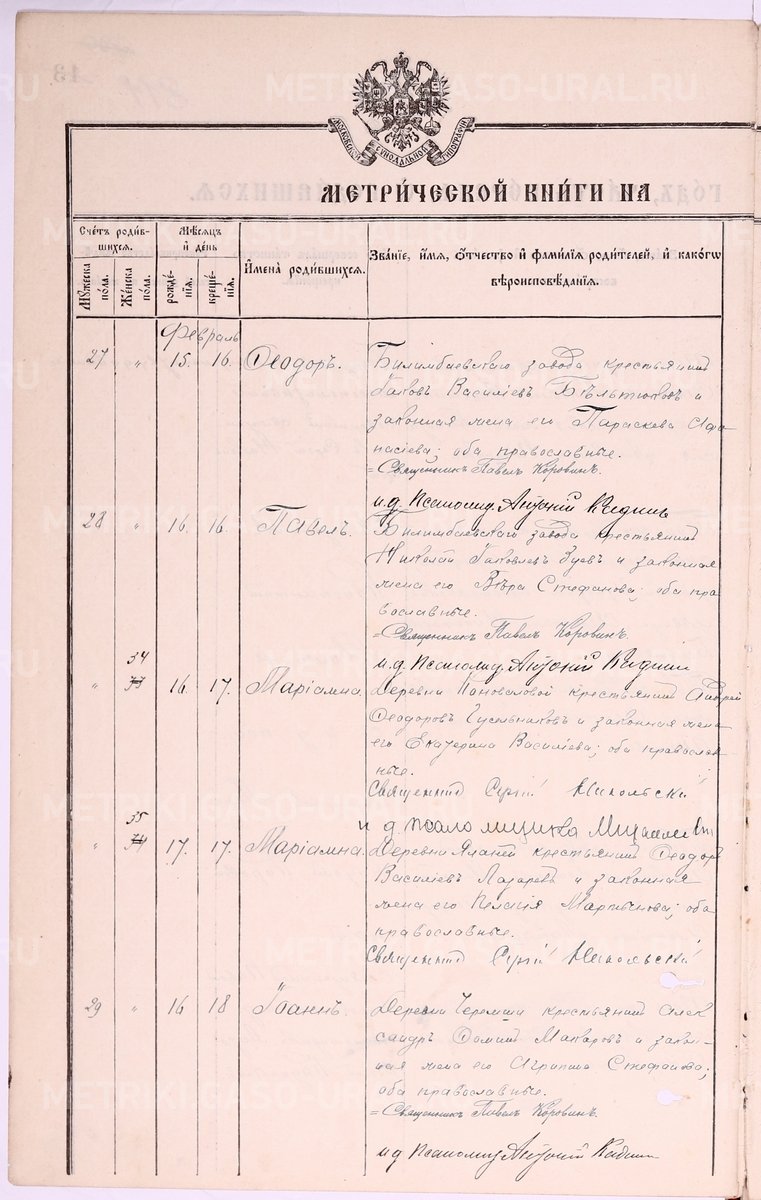 МОСКОВСКОЙ СѴНОДАЛЬНОЙ ТИПОГРАФІИ
МЕТРИ́ЧЕСКОЙ КНИ́ГИ НА
Сче́тъ роди́вшихся.
Мѣ́сяцъ и҆ де́нь
И҆мена̀ роди́вшихся.
Зва́нїе, и҆́мя, ѻ҆́тчество и҆ фами́лїя роди́телей, и҆ како́гѡ вѣроисповѣ́данїя.
Му́жеска по́ла.
Же́нска по́ла.
рожде́нїя.
креще́нїя.
Февраль
27 " 15. 16. Ѳеодоръ.
Билимбаевскаго завода крестьянинъ
Іаковъ Василіевъ Бѣльтюковъ и
законная жена его Параскева Аѳа-
насіева; оба православные.
= Священникъ Павелъ Коровинъ.
и.д. Псаломщ. Антоній Кидинъ
28 " 16. 16. Павелъ.
Билимбаевскаго завода крестьянинъ
Николай Іаковлевъ Зуевъ и законная
жена его Вѣра Стефанова; оба пра-
вославные.
= Священникъ Павелъ Коровинъ.
и.д. Псаломщ. Антоній Кидинъ
" 34 33 16. 17. Маріамна.
Деревни Коноваловой крестьянинъ Андрей
Ѳеодоровъ Гусельниковъ и законная жена
его Екатерина Василіева; оба православ-
ные.
Священникъ Сергій Никольскій
и д. псаломщика
" 35 34 17. 17. Маріамна.
Деревни крестьянинъ Ѳеодоръ
Василіевъ Лазаревъ и законная
жена его Пелагія Мартынова; оба
православные.
Священникъ Сергій Никольскій
29 " 16 18 Іоаннъ.
Деревни Черемша крестьянинъ Алек-
сандръ Ѳоминъ Макаровъ и закон-
ная жена его Агрипина Стефанова;
оба православные.
= Священникъ Павелъ Коровинъ.
и д Псаломщ Антоній Кидинъ
METRIKI.GASO-URAL.RU